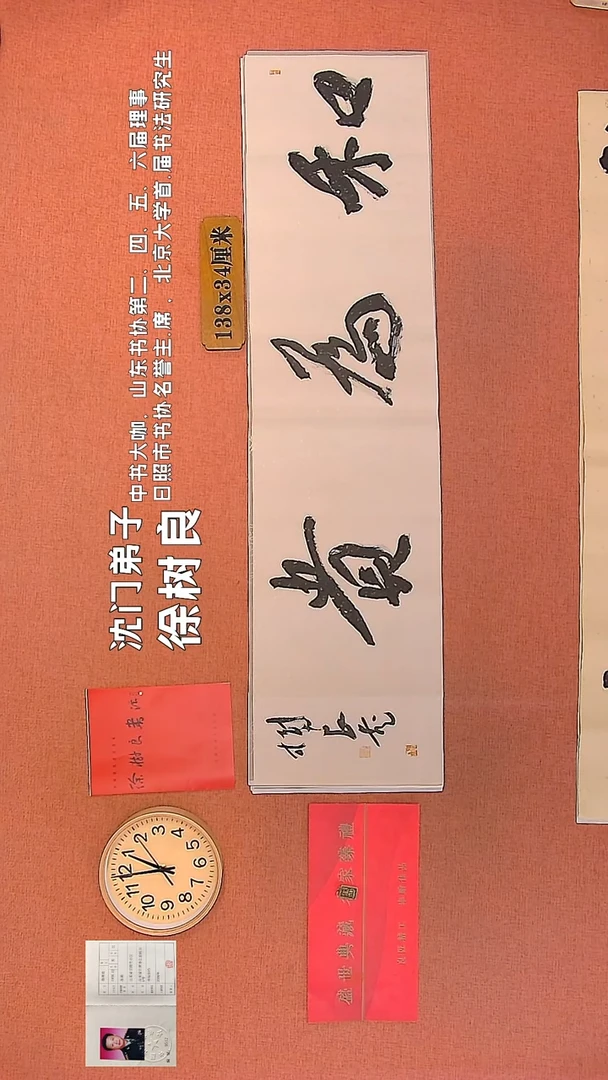 沈门弟子
徐树良
中书大咖、山东书协第二、四、五、六届理事
日照市书协名誉主席、北京大学首届书法研究生
138x34厘米
和为贵
树良书
徐树良书法。
盛世典藏 国家泰禮
12 1 2 3 4 5 6 7 8 9 10 11